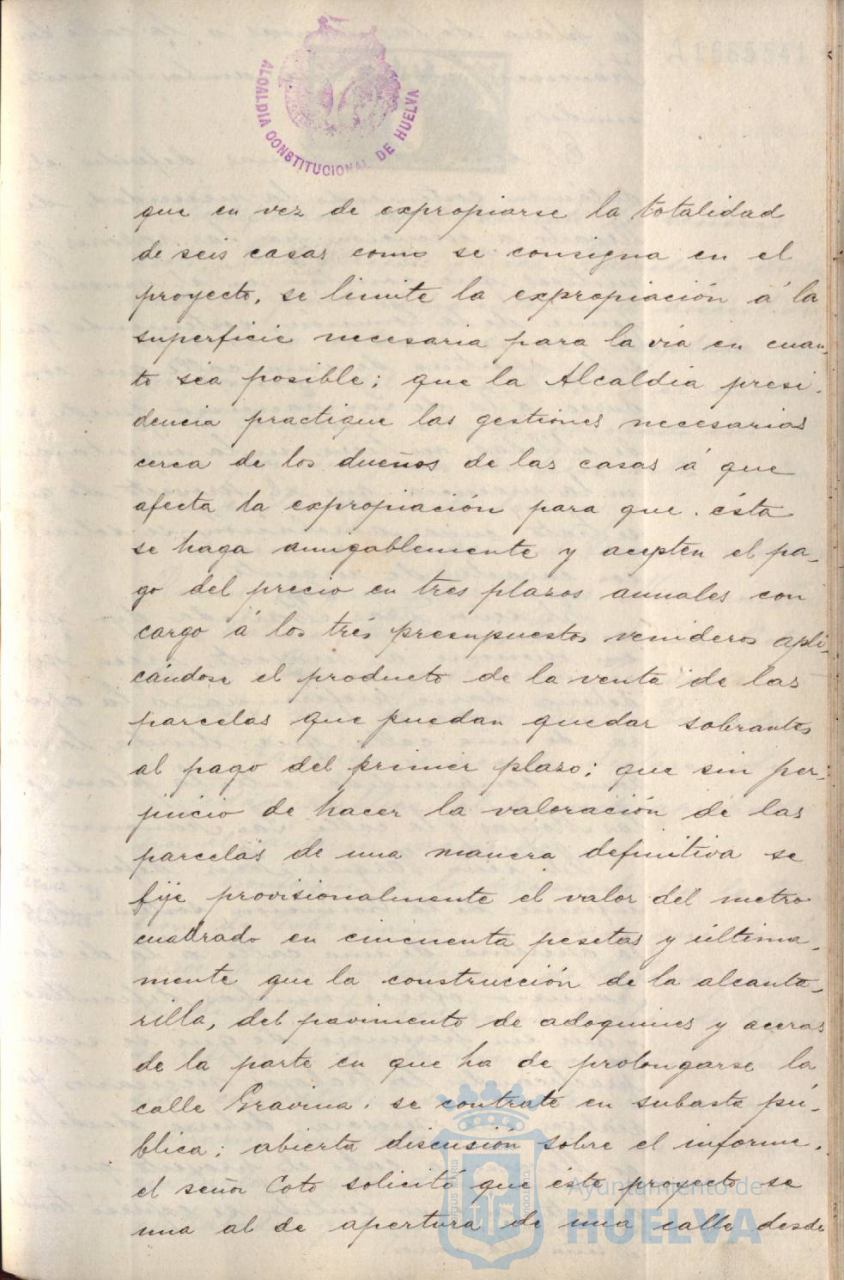 ALCALDIA CONSTITUCIONAL DE HUELVA
que en vez de expropiarse la totalidad
de seis casas como se consigna en el
proyecto, se limite la expropiación á la
superficie necesaria para la vía en cuan-
to sea posible; que la Alcaldia presi-
dencia practique las gestiones necesarias
cerca de los dueños de las casas á que
afecta la expropiación para que ésta
se haga amigablemente y acepten el pa-
go del precio en tres plazos anuales con
cargo á los tres presupuestos venideros apli-
cándose el producto de la venta de las
parcelas que puedan quedar sobrantes
al pago del primer plazo; que sin per-
juicio de hacer la valoración de las
parcelas de una manera definitiva se
fije provisionalmente el valor del metro
cuadrado en cincuenta pesetas y última-
mente que la construcción de la alcanta-
rilla, del pavimento de adoquines y aceras
de la parte en que ha de prolongarse la
calle Gravina se contrate en subasta pú-
blica; abierta discusión sobre el informe,
el señor Coto solicitó que éste proyecto se
una al de apertura de una calle desde
Ayuntamiento de
HUELVA